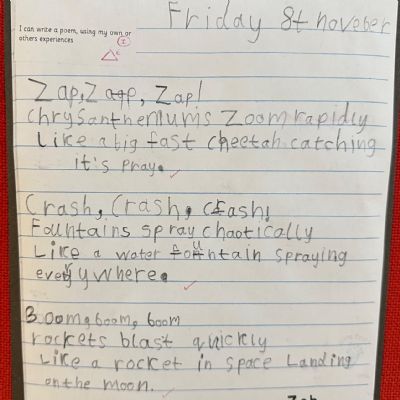 Friday 8t noveber
I can write a poem, using my own or
others experiences
Zap, Zap, Zap!
Chrysanthemums Zoom rapidly
Like a big fast cheetah catching
It's Pray.
Crash, Crash, Crash!
Fountains spray chaotically
Like a water fountain spraying
everywhere.
Boom, boom, boom
rockets blast quickly
Like a rocket in space Landing
on the moon.